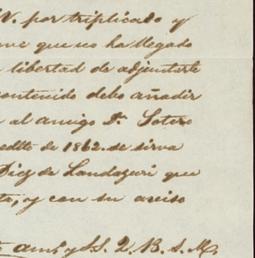 V. por triplicado y
que que no ha llegado
libertad de adjuntarle
contenido debo añadir
al amigo Dn. Sotero
de 1862. se sirva
Diez de Landazuri que
y con su aviso
amo. y S. S. Q. B. S. M.